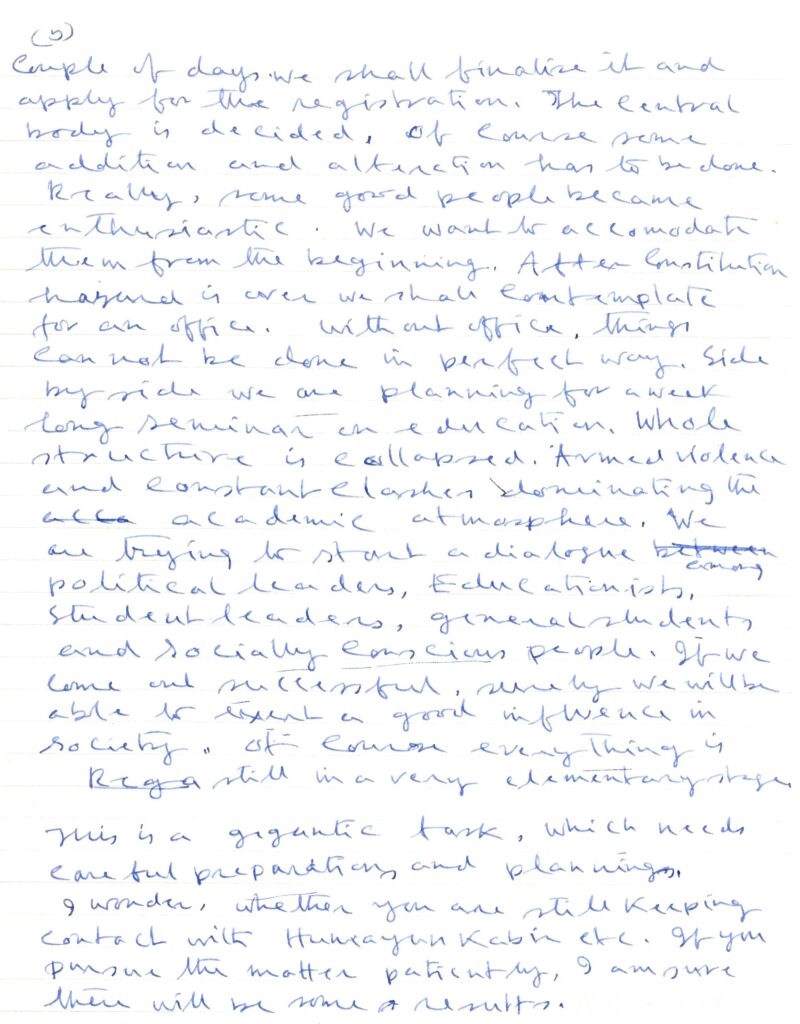 (5)
Couple of days. we shall finalise it and
apply for the registration. The Central
body is decided, of course some
addition and alteration has to be done.
Really, some good people became
enthusiastic. We want to accomodate
them from the beginning. After Constitution
is over we shall Contemplate
for an office. Without office, things
can not be done in perfect way. Side
by side we are planning for a week
long seminar on education. Whole
structure is collapsed. Armed violence
and constant clashes dominating the
academic atmosphere. We
are trying to start a dialogue between among
political leaders, Educationists,
student leaders, general students
and socially conscious people. If we
come out successful, surely we will be
able to exert a good influence in
society. Of course everything is
still in a very elementary stage.
This is a gigantic task, which needs
careful preparations and plannings.
I wonder, whether you are still keeping
contact with Humayun Kabir etc. If you
pursue the matter patiently, I am sure
there will be some results.